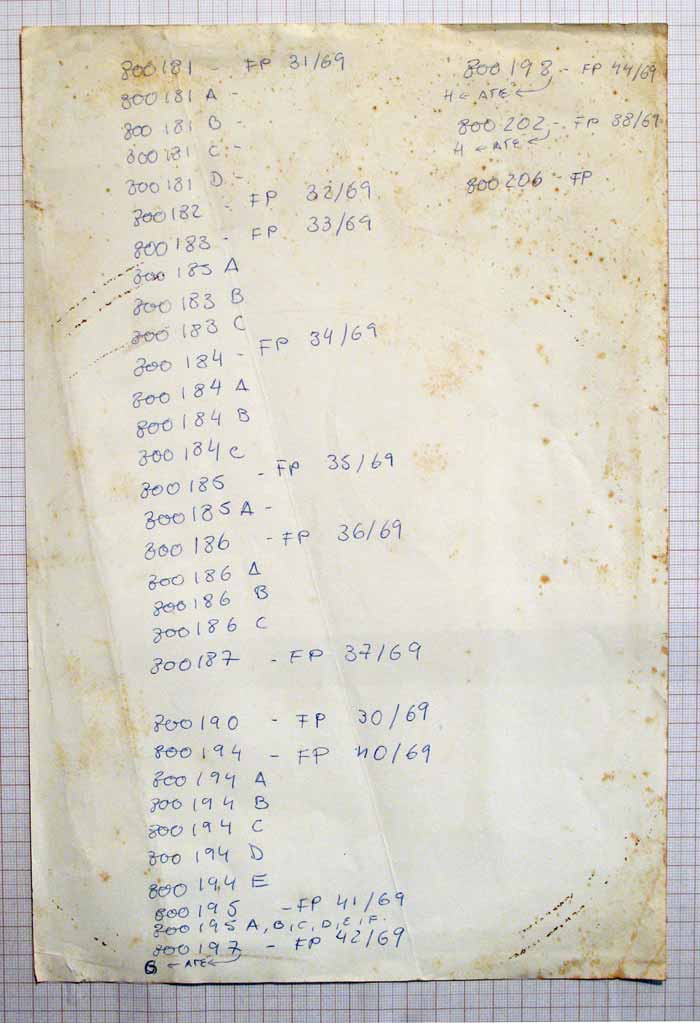 800181 - FP 31/69
800181 A -
800 181 B -
800 181 C -
800 181 D -
800182 - FP 32/69
800183 - FP 33/69
800 183 A
800 183 B
800 183 C
800 184 - FP 34/69
800 184 A
800184 B
800 184 C
800185 - FP 35/69
800185 A -
800 186 - FP 36/69
800 186 A
800186 B
800 186 C
800187 - FP 37/69
800190 - FP 30/69
800194 - FP 40/69
800 194 A
800 194 B
800 194 C
800 194 D
800 194 E
800 195 - FP 41/69
800195 A, B, C, D, E, F.
800197 - FP 42/69
G ← ATE
800198 - FP 44/69
H ← ATE
800 202 - FP 38/69
H ← ATE
800206 - FP